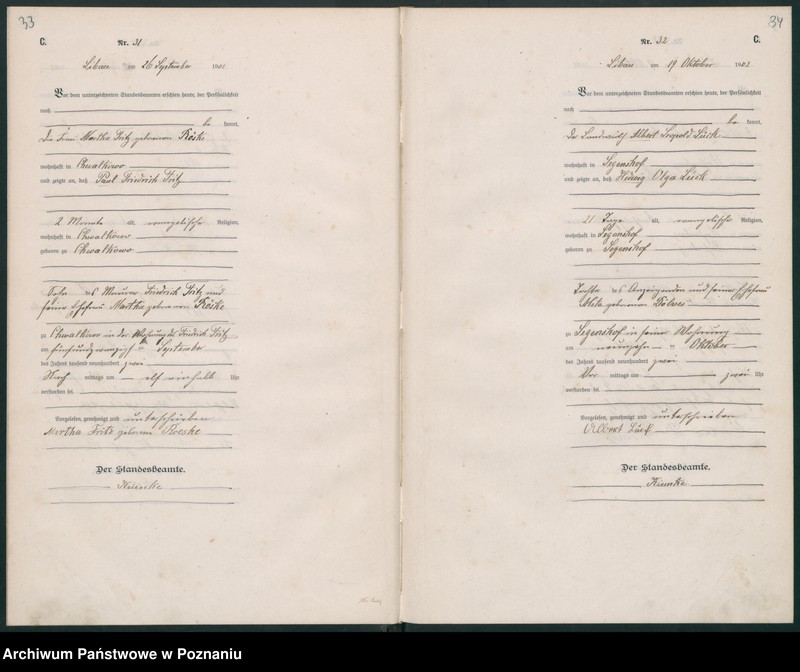 33
C.
Nr. 31
Libau am 26 September 1902
Vor dem unterzeichneten Standesbeamten erschien heute, der Persönlichkeit
nach
be kannt,
die Frau Martha Fritz geborene Röske
wohnhaft in Chwalkowo
und zeigte an, daß Paul Friedrich Fritz
2 Monate alt, evangelischer Religion,
wohnhaft in Chwalkowo
geboren zu Chwalkowo
Sohn des Maurer Friedrich Fritz und
seiner Ehefrau Martha geborenen Röske
zu Chwalkowo in der Wohnung des Friedrich Fritz
am fünfundzwanzigsten September
des Jahres tausend neunhundert zwei
Nach mittags um elf einhalb Uhr
verstorben sei.
Vorgelesen, genehmigt und unterschrieben
Martha Fritz geborene Roeske
Der Standesbeamte.
34
C.
Nr. 32
Libau am 19 Oktober 1902
Vor dem unterzeichneten Standesbeamten erschien heute, der Persönlichkeit
nach
be kannt,
der Landwirth Albert Leopold Lück
wohnhaft in
und zeigte an, daß Hedwig Olga Lück
21 Tage alt, evangelischer Religion,
wohnhaft in
geboren zu
Tochter des Anzeigenden und seiner Ehefrau
geborenen
zu in seiner Wohnung
am neunzehn ten Oktober
des Jahres tausend neunhundert zwei
Vor mittags um zwei Uhr
verstorben sei.
Vorgelesen, genehmigt und unterschrieben
Albert Lück
Der Standesbeamte.
Archiwum Państwowe w Poznaniu